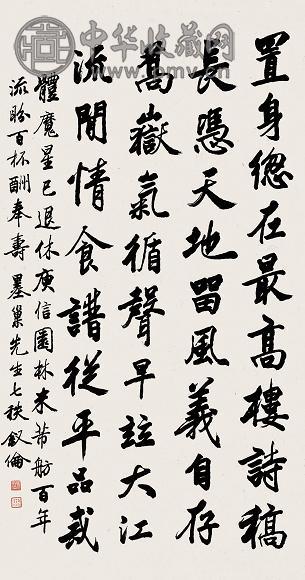 中华收藏网
置身總在最高樓詩稿
長憑天地留風義自存
嵩嶽氣循聲早竝大江
流閒情食譜從平品感
體魔星已退休庾信園林米芾舫百年
流盼百杯酬奉壽墨巢先生七秩釵倫